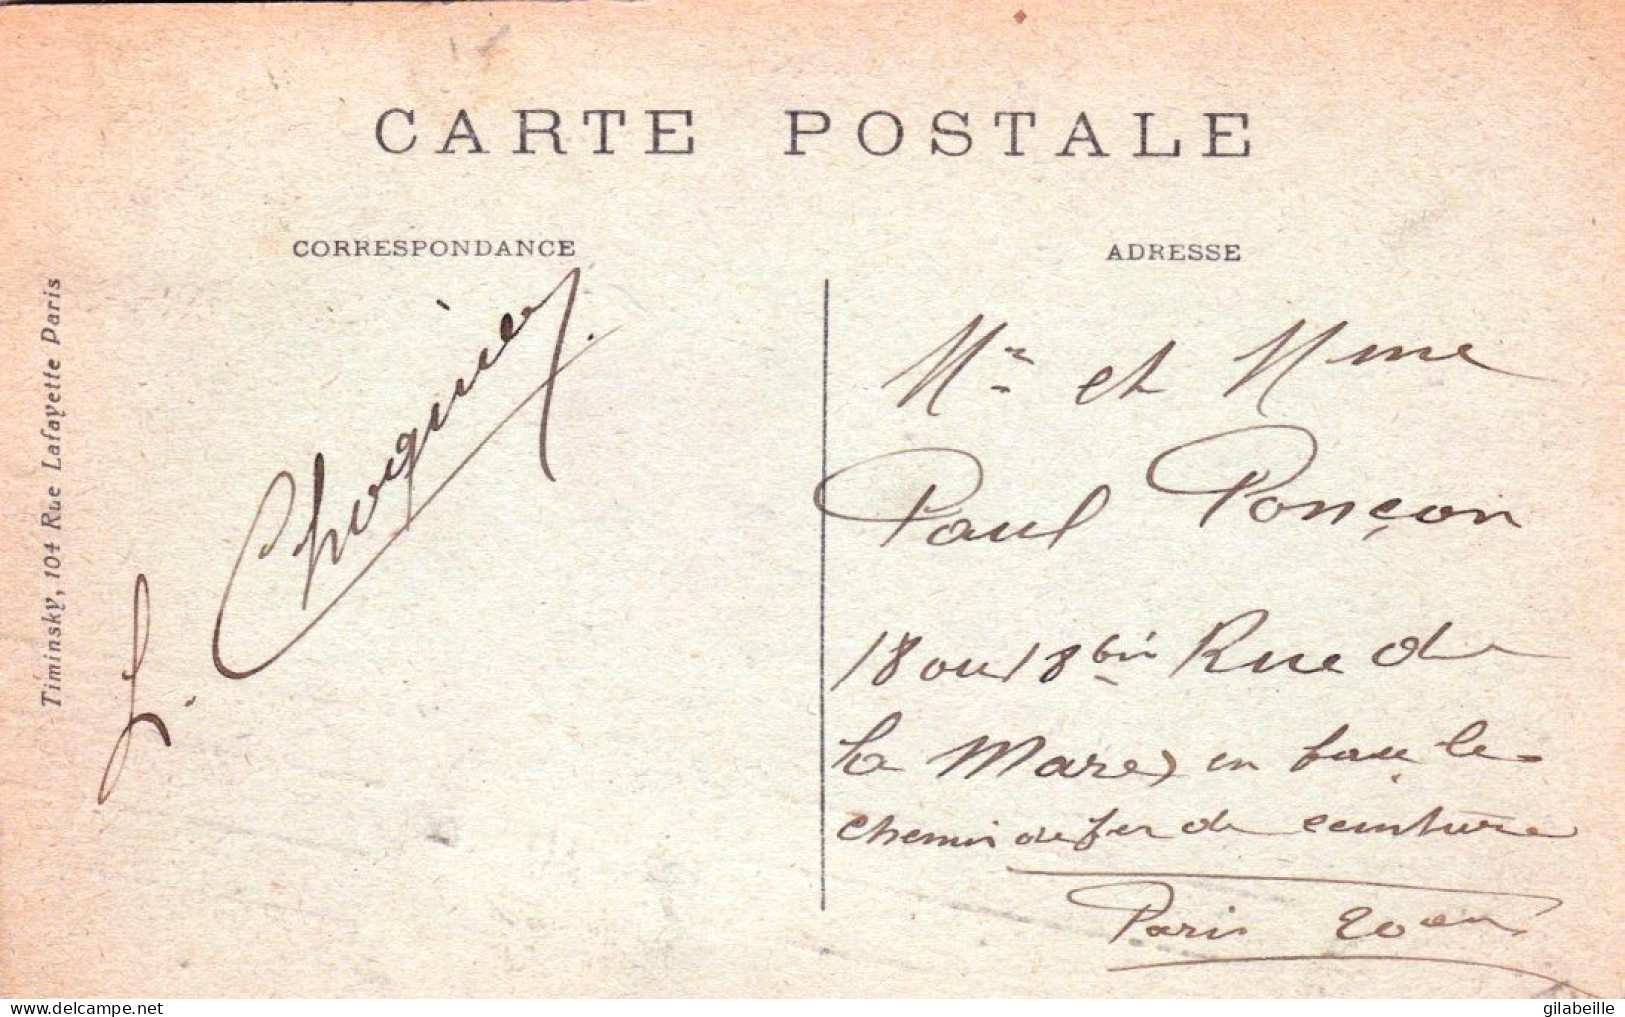 CARTE POSTALE
CORRESPONDANCE
ADRESSE
Timinsky, 104 Rue Lafayette Paris
L. Choquier.
Mr et Mme
Paul Ponçon
18 ou 18 bis Rue de
la Mare, en face le
chemin de fer de ceinture
Paris 20em
delcampe.net
gilabeille